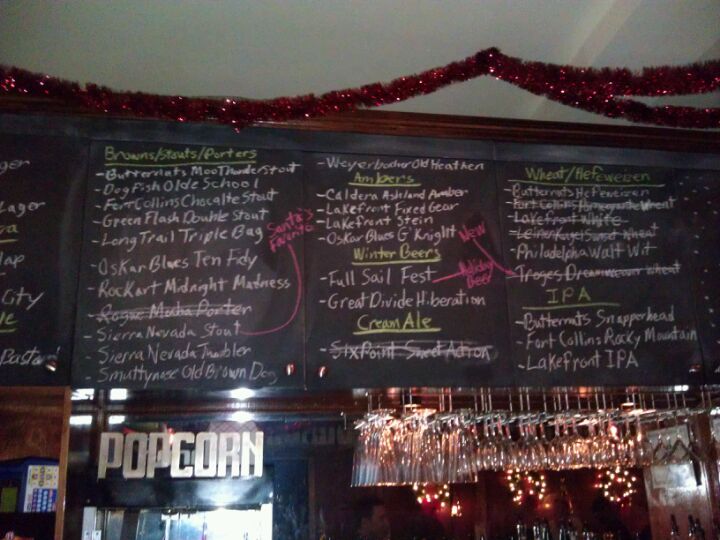 ager
Lager
City
Pastard
Browns/Stouts/Porters
-Butternats Moo Thunderstout
-Dogfish Olde School
-Fort Collins Chocalte Stout
-Green Flash Double Stout
-Long Trail Triple Bag
-Oskar Blues Ten Fidy
-Rockart Midnight Madness
-Rogue Mocha Porter
-Sierra Nevada Stout
-Sierra Nevada Tumbler
-Smuttynose Old Brown Dog
Santa's
Favorite
-Weyerbacher Old Heathen
Ambers
-Caldera Ashland Amber
-Lakefront Fixed Gear
-Lakefront Stein
-Oskar Blues G'Knight
Winter Beers
-Full Sail Fest
-Great Divide Hibernation
Cream Ale
-Six Point Sweet Action
New
Holiday
Beer
Wheat/Hefeweizen
-Butternats Hefeweizen
-Fort Collins Pomegranate Wheat
-Lakefront White
-Leinenkugel Sunset Wheat
-Philadelphia Walt Wit
-Troges Dreamweaver Wheat
IPA
-Butternats Snapperhead
-Fort Collins Rocky Mountain
-Lakefront IPA
POPCORN